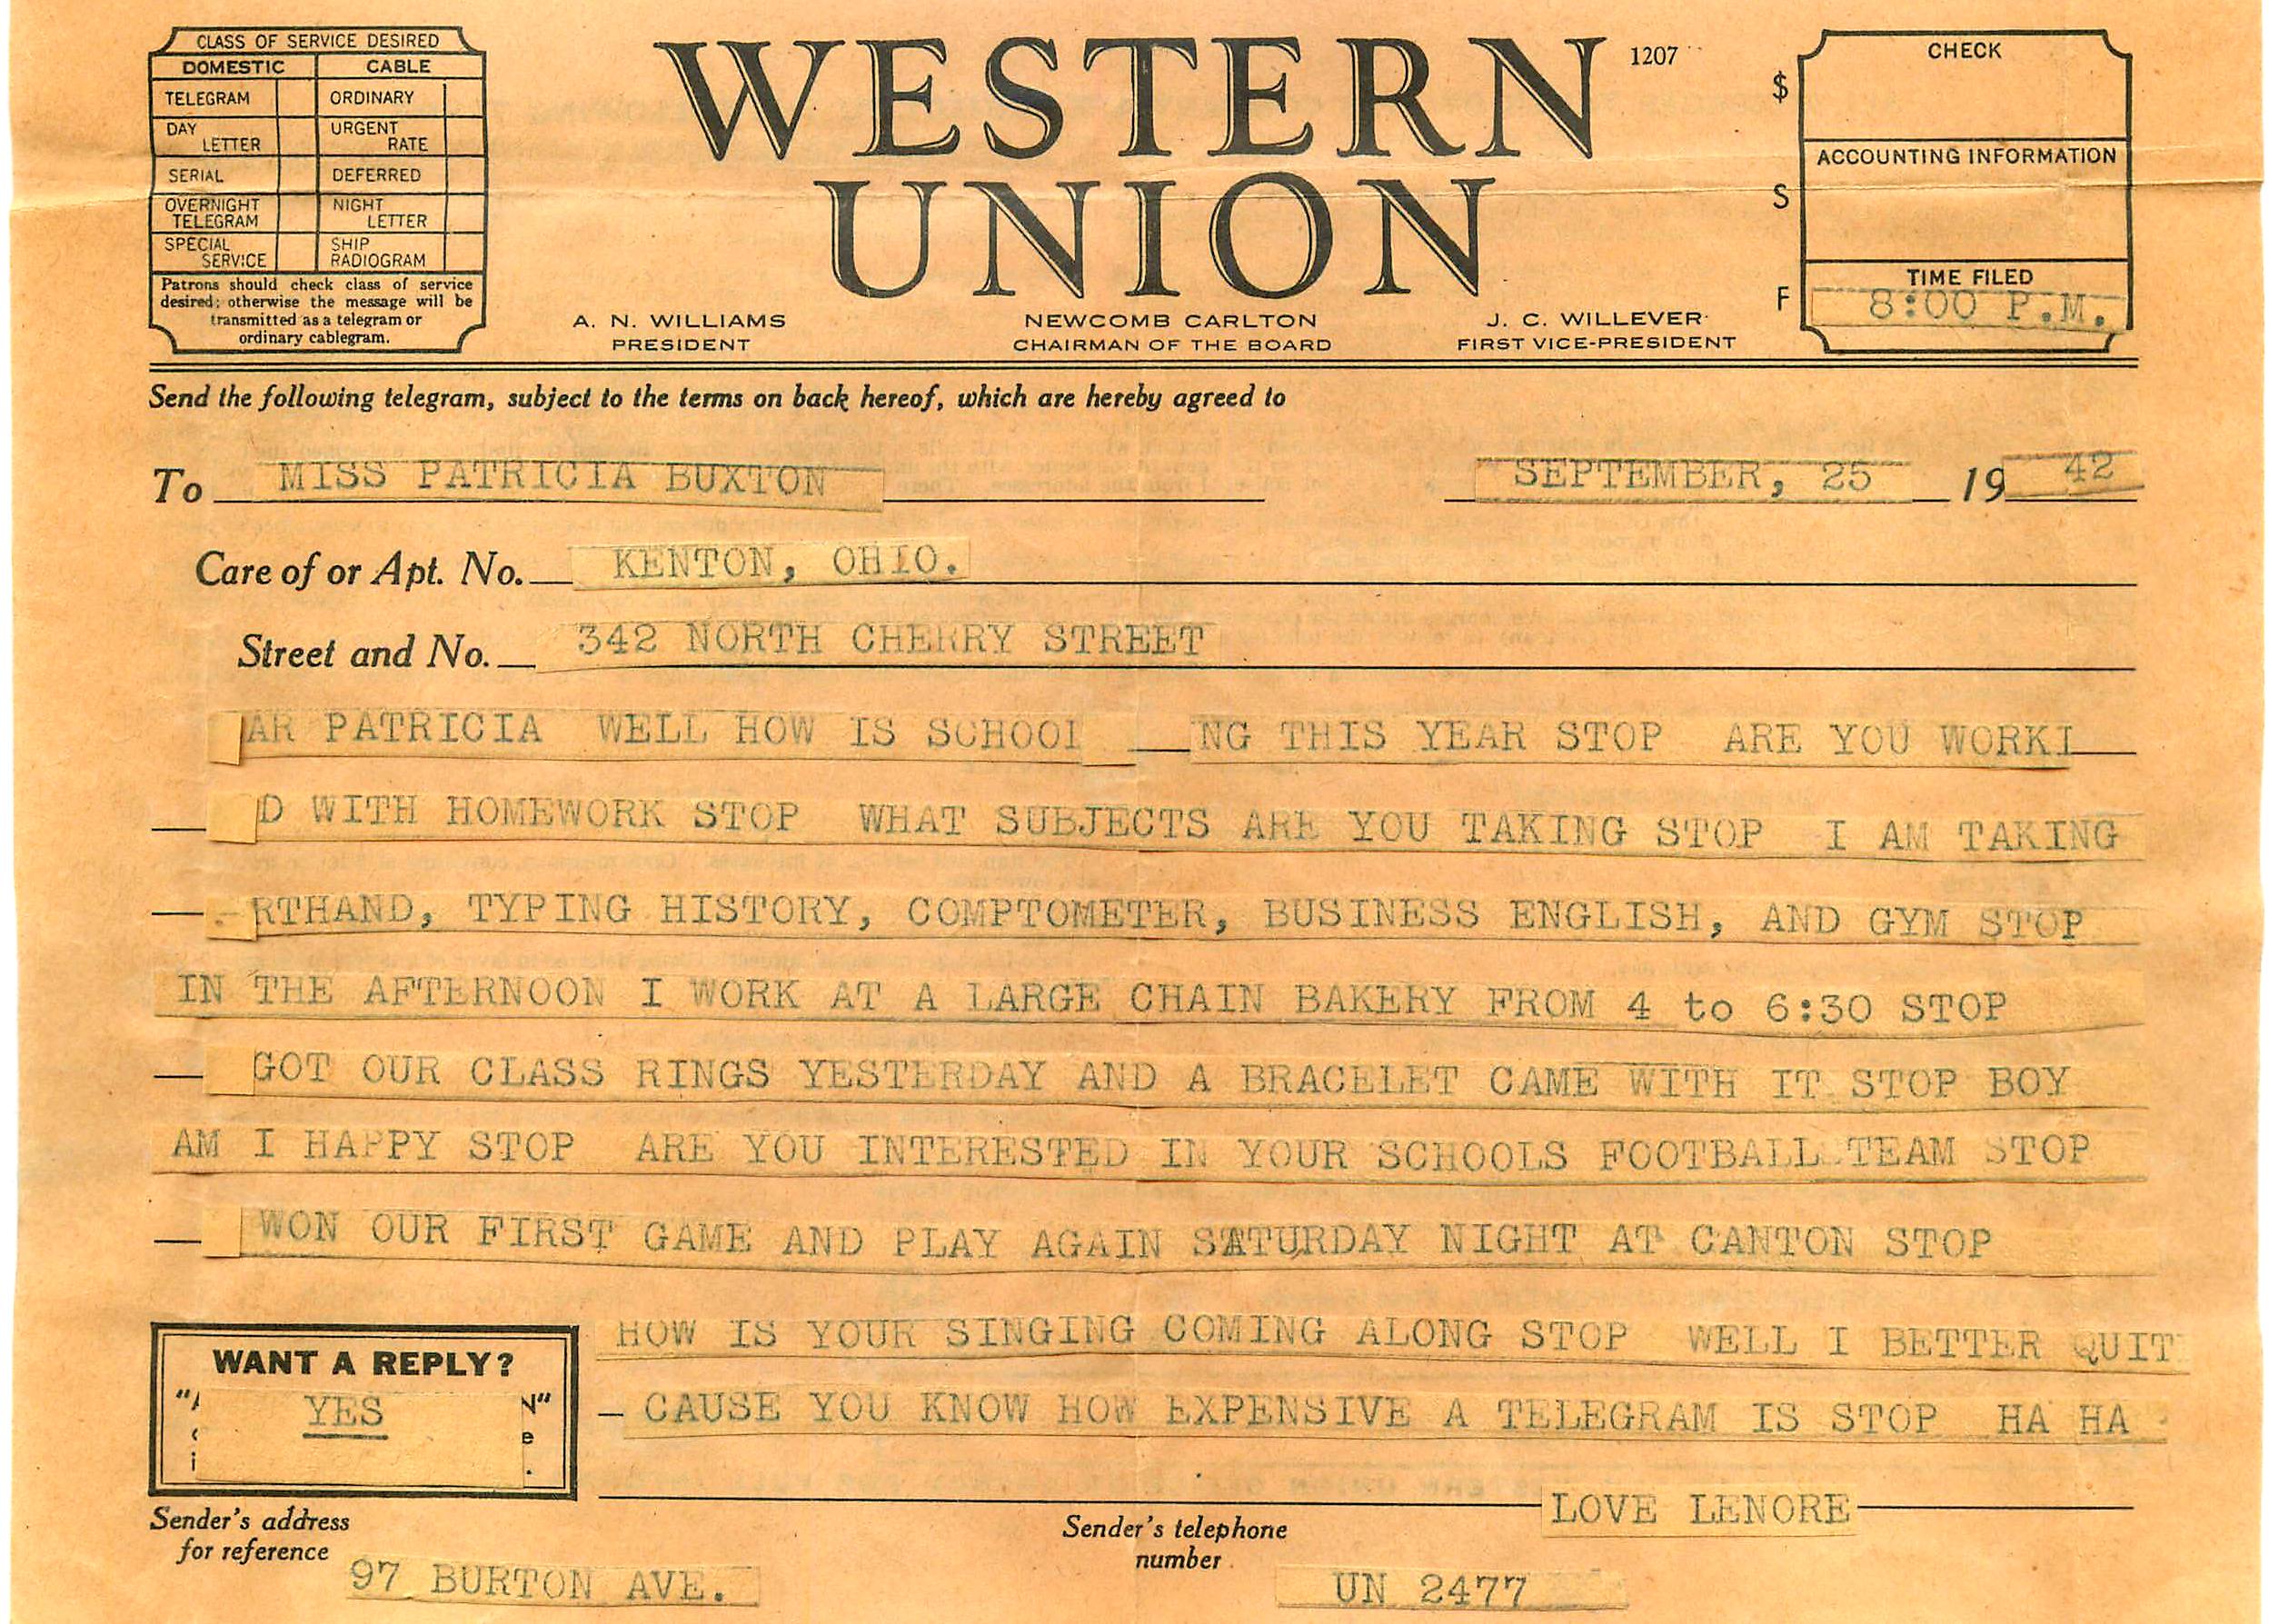 CLASS OF SERVICE DESIRED
DOMESTIC CABLE
TELEGRAM ORDINARY
DAY LETTER URGENT RATE
SERIAL DEFERRED
OVERNIGHT TELEGRAM NIGHT LETTER
SPECIAL SERVICE SHIP RADIOGRAM
Patrons should check class of service
desired; otherwise the message will be
transmitted as a telegram or
ordinary cablegram.
WESTERN
UNION
1207
A. N. WILLIAMS
PRESIDENT
NEWCOMB CARLTON
CHAIRMAN OF THE BOARD
J. C. WILLEVER
FIRST VICE-PRESIDENT
$
S
F
CHECK
ACCOUNTING INFORMATION
TIME FILED
8:00 P.M.
Send the following telegram, subject to the terms on back hereof, which are hereby agreed to
To MISS PATRICIA BUXTON SEPTEMBER, 25 19 42
Care of or Apt. No. KENTON, OHIO.
Street and No. 342 NORTH CHERRY STREET
AR PATRICIA WELL HOW IS SCHOOL NG THIS YEAR STOP ARE YOU WORKI
D WITH HOMEWORK STOP WHAT SUBJECTS ARE YOU TAKING STOP I AM TAKING
RTHAND, TYPING HISTORY, COMPTOMETER, BUSINESS ENGLISH, AND GYM STOP
IN THE AFTERNOON I WORK AT A LARGE CHAIN BAKERY FROM 4 to 6:30 STOP
GOT OUR CLASS RINGS YESTERDAY AND A BRACELET CAME WITH IT STOP BOY
AM I HAPPY STOP ARE YOU INTERESTED IN YOUR SCHOOLS FOOTBALL TEAM STOP
WON OUR FIRST GAME AND PLAY AGAIN SATURDAY NIGHT AT CANTON STOP
HOW IS YOUR SINGING COMING ALONG STOP WELL I BETTER QUIT
CAUSE YOU KNOW HOW EXPENSIVE A TELEGRAM IS STOP HA HA
WANT A REPLY?
YES
LOVE LENORE
Sender's address
for reference
97 BURTON AVE.
Sender's telephone
number
UN 2477